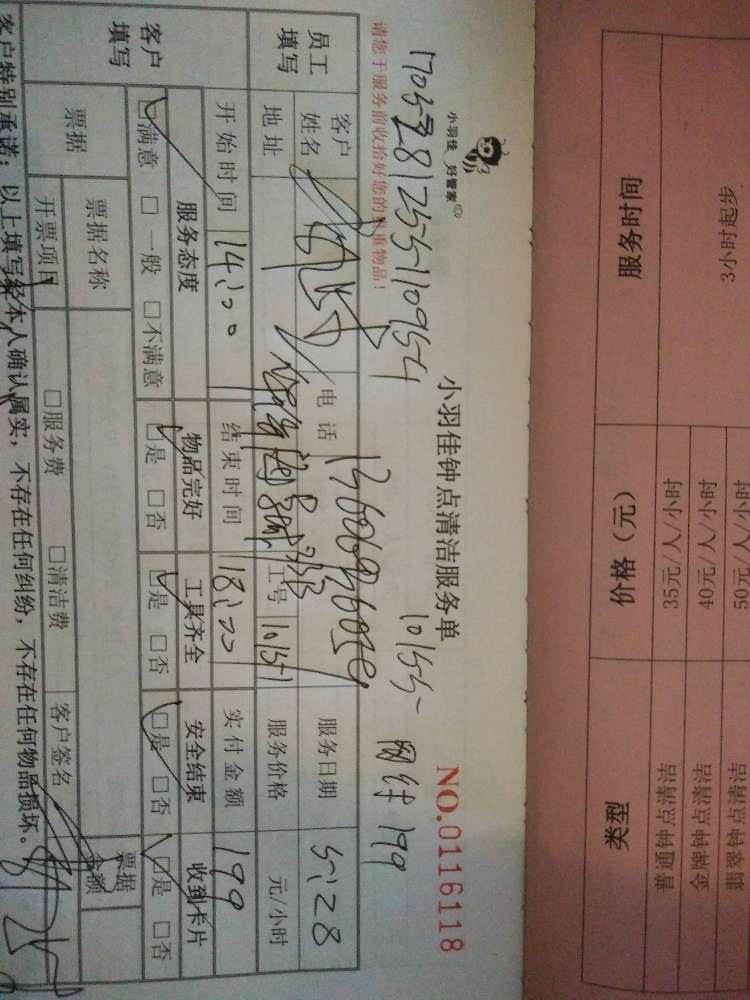 服务时间 价格（元） 类型
3小时起步 35元/人/小时 普通钟点清洁
40元/人/小时 金牌钟点清洁
50元/人/小时 翡翠钟点清洁
小羽佳 好管家
小羽佳钟点清洁服务单
NO.0116118
1705281255110954
10155
199
请您于服务前收拾好您的贵重物品！
员工填写
客户姓名 电话 服务日期 5:28
地址 工号 10151 服务价格 元/小时
开始时间 14:00 结束时间 18:00 实付金额 199
客户填写
服务态度 物品完好 工具齐全 安全结束 收到卡片
□满意 □一般 □不满意 □是 □否 □是 □否 □是 □否 □是 □否
票据 票据名称 票据金额
开票项目 □服务费 □清洁费 客户签名
客户特别承诺：以上填写经本人确认属实，不存在任何纠纷，不存在任何物品损坏。